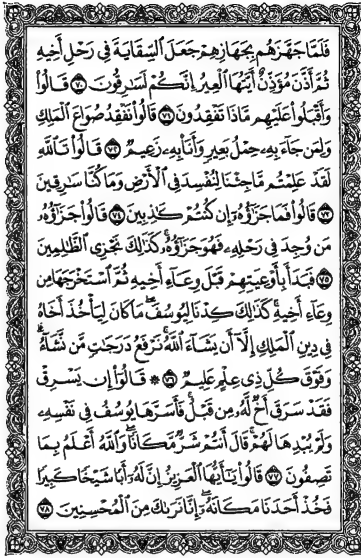 فَلَمَّا جَهَّزَهُم بِجَهَازِهِمْ جَعَلَ ٱلسِّقَايَةَ فِى رَحْلِ أَخِيهِ
ثُمَّ أَذَّنَ مُؤَذِّنٌ أَيَّتُهَا ٱلْعِيرُ إِنَّكُمْ لَسَٰرِقُونَ ٧٠ قَالُوا۟
وَأَقْبَلُوا۟ عَلَيْهِم مَّاذَا تَفْقِدُونَ ٧١ قَالُوا۟ نَفْقِدُ صُوَاعَ ٱلْمَلِكِ
وَلِمَن جَآءَ بِهِۦ حِمْلُ بَعِيرٍ وَأَنَا۠ بِهِۦ زَعِيمٌ ٧٢ قَالُوا۟ تَٱللَّهِ
لَقَدْ عَلِمْتُم مَّا جِئْنَا لِنُفْسِدَ فِى ٱلْأَرْضِ وَمَا كُنَّا سَٰرِقِينَ
٧٣ قَالُوا۟ فَمَا جَزَٰٓؤُهُۥٓ إِن كُنتُمْ كَٰذِبِينَ ٧٤ قَالُوا۟ جَزَٰٓؤُهُۥ
مَن وُجِدَ فِى رَحْلِهِۦ فَهُوَ جَزَٰٓؤُهُۥ كَذَٰلِكَ نَجْزِى ٱلظَّٰلِمِينَ
٧٥ فَبَدَأَ بِأَوْعِيَتِهِمْ قَبْلَ وِعَآءِ أَخِيهِ ثُمَّ ٱسْتَخْرَجَهَا مِن
وِعَآءِ أَخِيهِ ۚ كَذَٰلِكَ كِدْنَا لِيُوسُفَ ۖ مَا كَانَ لِيَأْخُذَ أَخَاهُ
فِى دِينِ ٱلْمَلِكِ إِلَّآ أَن يَشَآءَ ٱللَّهُ ۚ نَرْفَعُ دَرَجَٰتٍ مَّن نَّشَآءُ ۗ
وَفَوْقَ كُلِّ ذِى عِلْمٍ عَلِيمٌ ٧٦ ۞ قَالُوٓا۟ إِن يَسْرِقْ
فَقَدْ سَرَقَ أَخٌ لَّهُۥ مِن قَبْلُ ۚ فَأَسَرَّهَا يُوسُفُ فِى نَفْسِهِۦ
وَلَمْ يُبْدِهَا لَهُمْ ۚ قَالَ أَنتُمْ شَرٌّ مَّكَانًا ۖ وَٱللَّهُ أَعْلَمُ بِمَا
تَصِفُونَ ٧٧ قَالُوا۟ يَٰٓأَيُّهَا ٱلْعَزِيزُ إِنَّ لَهُۥٓ أَبًا شَيْخًا كَبِيرًا
فَخُذْ أَحَدَنَا مَكَانَهُۥٓ ۖ إِنَّا نَرَىٰكَ مِنَ ٱلْمُحْسِنِينَ ٧٨